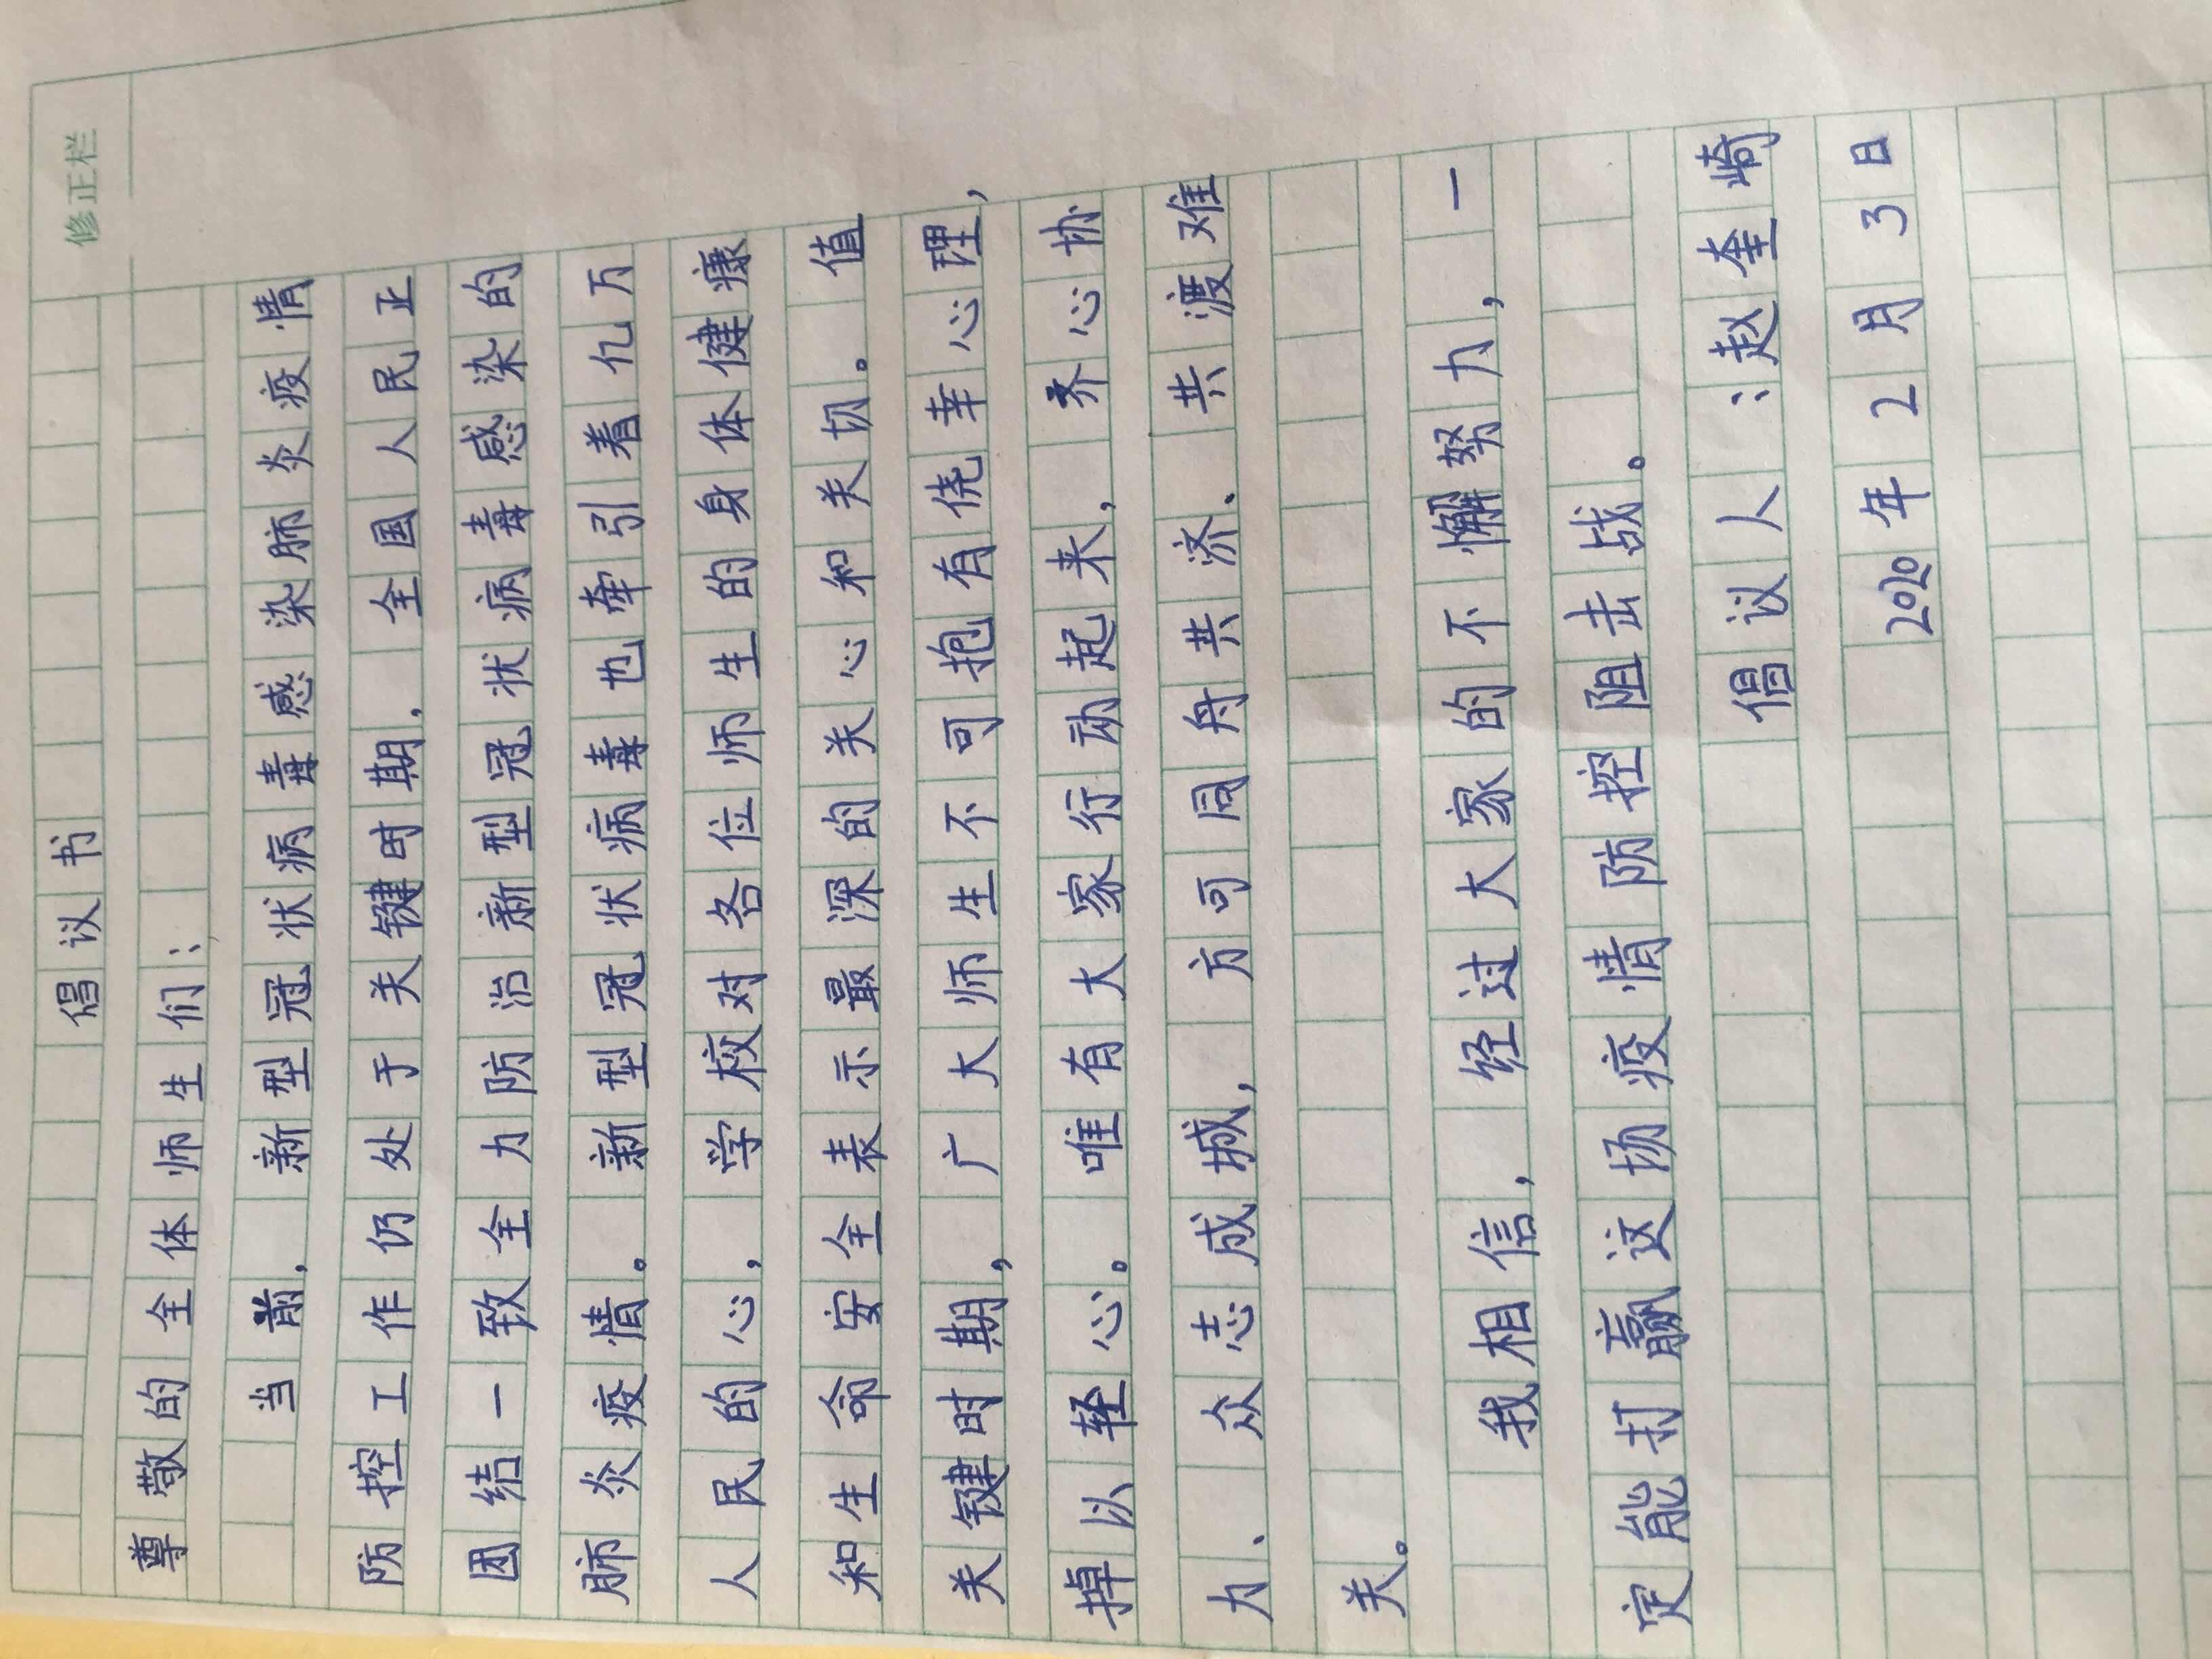 修正栏
倡议书
尊敬的全体师生们：
当前，新型冠状病毒感染肺炎疫情
防控工作仍处于关键时期，全国人民正
团结一致全力防治新型冠状病毒感染的
肺炎疫情。新型冠状病毒也牵引着亿万
人民的心，学校对各位师生的身体健康
和生命安全表示最深的关心和关切。值
关键时期，广大师生不可抱有侥幸心理，
掉以轻心。唯有大家行动起来，齐心协
力、众志成城，方可同舟共济、共渡难
关。
我相信，经过大家的不懈努力，一
定能打赢这场疫情防控阻击战。
倡议人：赵奎崎
2020年2月3日